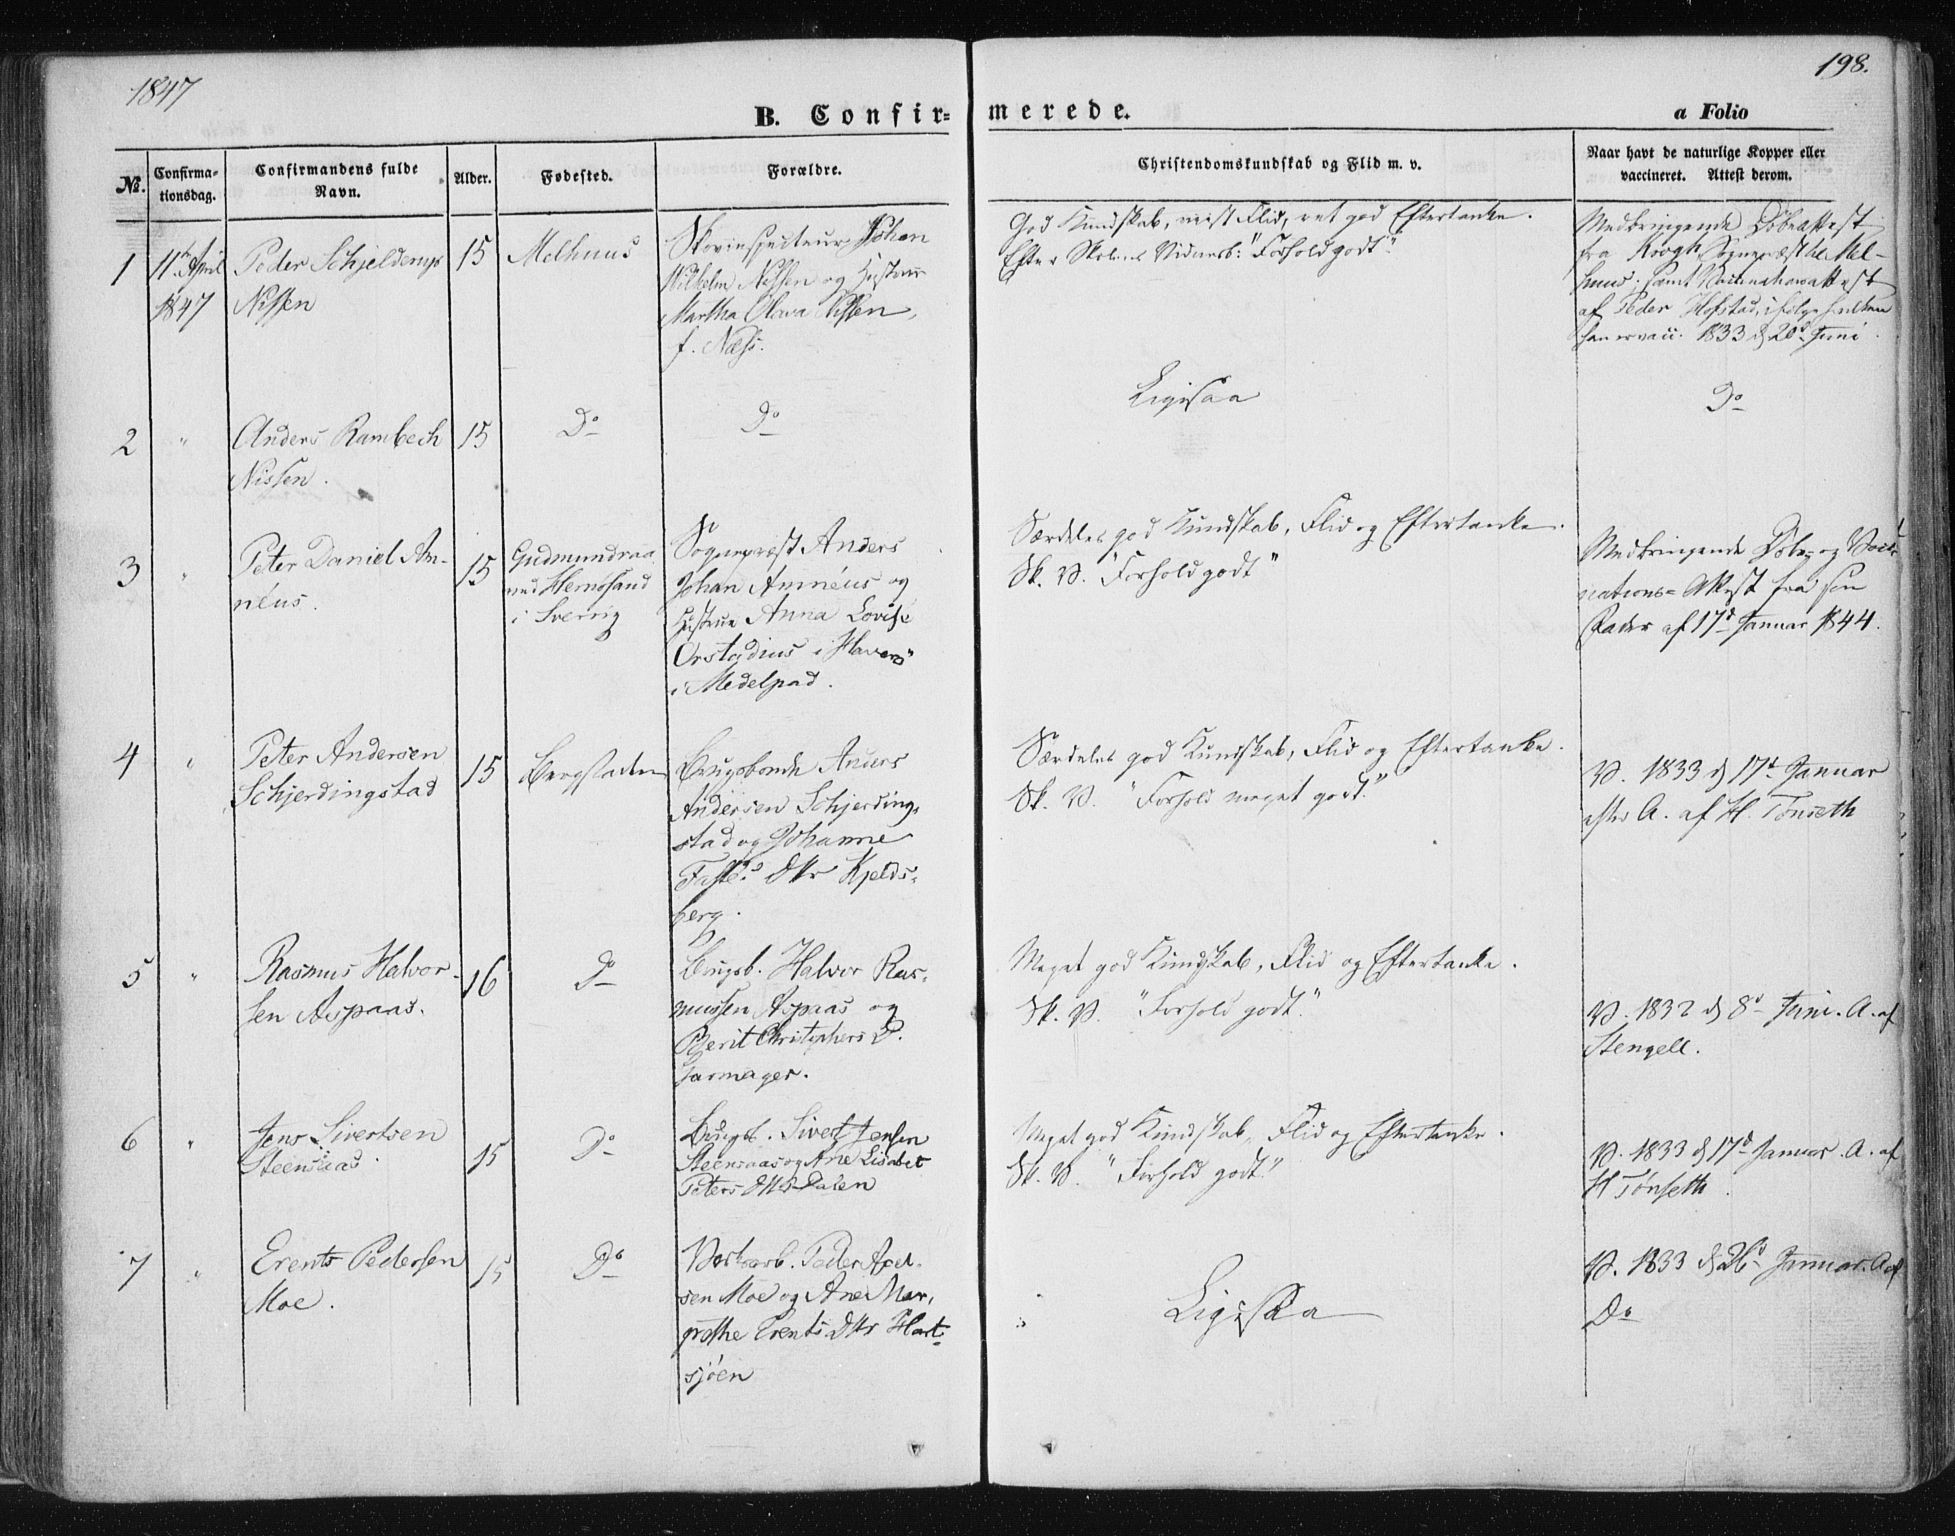 1847
198.
B. Confir= merede.
a Folio
No.
Confirma-
tionsdag.
Confirmandens fulde
Navn.
Alder.
Fødested.
Forældre.
Christendomskundskab og Flid m. v.
Naar havt de naturlige Kopper eller
vaccineret. Attest derom.
1
11te April
1847
Peder Schjelderup
Nissen
15
Melhuus
Skovinspecteur Johan
Wilhelm Nissen og Hustrue
Martha Olava Nissen,
f. Næss.
God Kundskab, Flid, ret god Eftertanke.
Efter Skolens Vidnesb: "Forhold godt".
Medbringende Døbeattest
fra Krogh, Sognepræst til Mel-
huus; samt Vaccinationsattest
af Peder Hofstad, ifølge hvilken
han er vacc. 1833 d 20d Juni.
2
"
Anders Rambech
Nissen.
15
Do
Do
Ligesaa
Do
3
"
Peter Daniel Am-
néus.
15
Gudmundraa
ved Hernösand
i Sverrig
Sognepræst Anders
Johan Amnéus og
Hustrue Anna Lovise
Orstadius i Haverö
i Medelpad.
Særdeles god Kundskab, Flid og Eftertanke.
Sk. V. "Forhold godt"
Medbringende Døbe- og Vacci-
nations=Attest fra sin
Fader af 17d Januar 1844.
4
"
Peter Andersen
Schjerdingstad
15
Bergstaden
Brugsbonde Anders
Andersen Schjerding-
stad og Johanne
Dtr Kjelds-
berg.
Særdeles god Kundskab, Flid og Eftertanke.
Sk. V. "Forhold meget godt."
V. 1833 d 17d Januar
efter A. af H. Tønseth
5
"
Rasmus Halvor-
sen Aspaas.
16
Do
Brugsb. Halvor Ras-
mussen Aspaas og
Berit Christophers D.
Galaager.
Meget god Kundskab, Flid og Eftertanke.
Sk. V. "Forhold godt."
V. 1832 d 8d Juni. A. af
Stengell.
6
"
Jens Sivertsen
Steensaas.
15
Do
Brugsb. Sivert Jensen
Steensaas og Ane Lisabet
Peters Dtr Dalen
Meget god Kundskab, Flid og Eftertanke.
Sk. V. "Forhold godt."
V. 1833 d 17d Januar. A. af
H Tønseth.
7
"
Erents Pedersen
Moe.
15
Do
Peder Axel-
sen Moe og Ane Mar-
grethe Erents Dtr Hart-
sjöen
Ligesaa
V. 1833 d 26d Januar. A af
Do